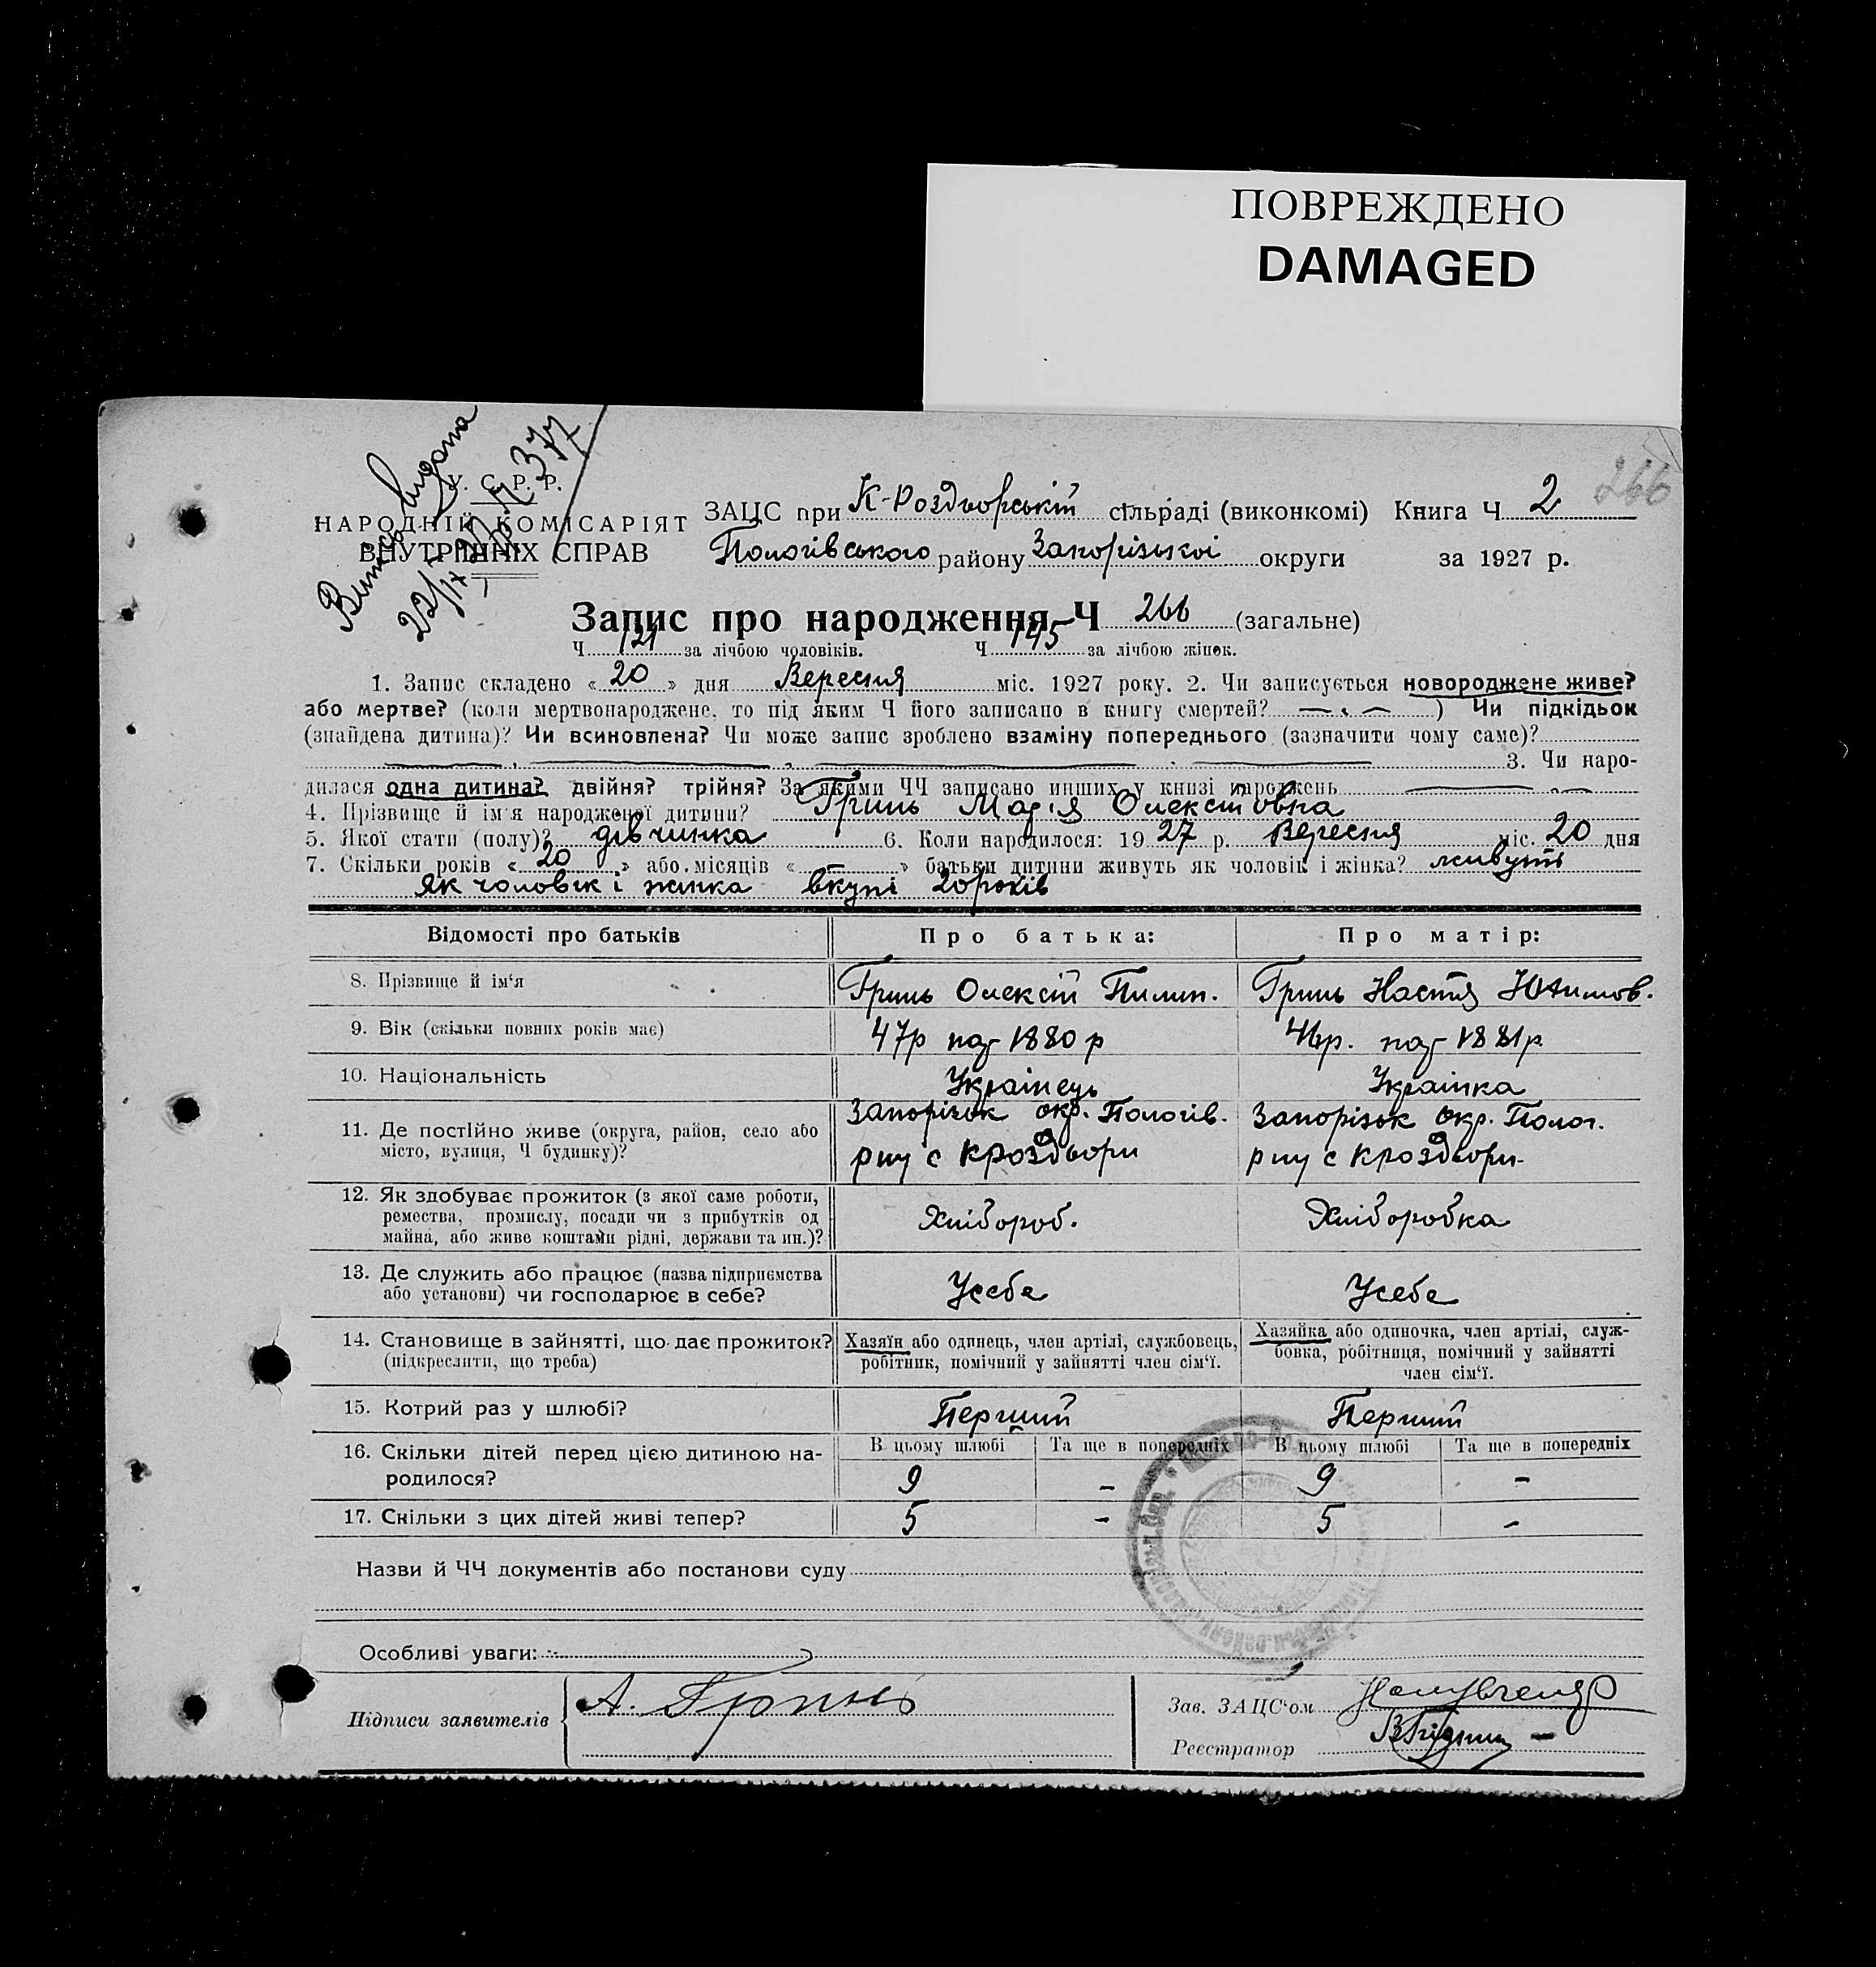 ПОВРЕЖДЕНО
DAMAGED
266
Випись видана
22/IX 27 р. № 377
У. С. Р. Р.
НАРОДНІЙ КОМІСАРІЯТ
ВНУТРІШНІХ СПРАВ
ЗАЦС при К-Роздорській сільраді (виконкомі) Книга Ч 2
Пологівського району Запорізькоі округи за 1927 р.
Запис про народження Ч 266 (загальне)
Ч 121 за лічбою чоловіків. Ч 145 за лічбою жінок.
1. Запис складено « 20 » дня Вересня міс. 1927 року. 2. Чи записується новороджене живе?
або мертве? (коли мертвонароджене, то під яким Ч його записано в книгу смертей? ) Чи підкідьок
(знайдена дитина)? Чи всиновлена? Чи може запис зроблено взаміну попереднього (зазначити чому саме)?
3. Чи наро-
дилася одна дитина? двійня? трійня? За якими ЧЧ записано инших у книзі народжень
4. Прізвище й ім'я народженої дитини? Гринь Марія Олексіївна
5. Якої стати (полу)? дівчинка 6. Коли народилося: 19 27 р. Вересня міс. 20 дня
7. Скільки років « 20 » або місяців « — » батьки дитини живуть як чоловік і жінка? живуть
як чоловік і жінка вкупі 20 років
Відомості про батьків Про батька: Про матір:
8. Прізвище й ім'я Гринь Олексій Пилип. Гринь Настя Юхимов.
9. Вік (скільки повних років має) 47р 1880 р 46р. 1881р
10. Національність Українець Українка
11. Де постійно живе (округа, район, село або місто, вулиця, Ч будинку)? Запорізьк окр. Пологів. рну с КРоздори Запорізьк окр. Полог. рну с КРоздори
12. Як здобуває прожиток (з якої саме роботи, ремества, промислу, посади чи з прибутків од майна, або живе коштами рідні, держави та ин.)? Хлібороб. Хліборобка
13. Де служить або працює (назва підприємства або установи) чи господарює в себе? Усебе Усебе
14. Становище в зайнятті, що дає прожиток? (підкреслити, що треба) Хазяїн або одинець, член артілі, службовець, робітник, помічний у зайнятті член сім'ї. Хазяйка або одиночка, член артілі, служ-бовка, робітниця, помічний у зайнятті член сім'ї.
15. Котрий раз у шлюбі? Перший Перший
В цьому шлюбі Та ще в попередніх В цьому шлюбі Та ще в попередніх
16. Скільки дітей перед цією дитиною на-родилося? 9 – 9 –
17. Скільки з цих дітей живі тепер? 5 – 5 –
Назви й ЧЧ документів або постанови суду
Особливі уваги:
Підписи заявителів А. Гринь
Зав. ЗАЦС'ом
Реєстратор